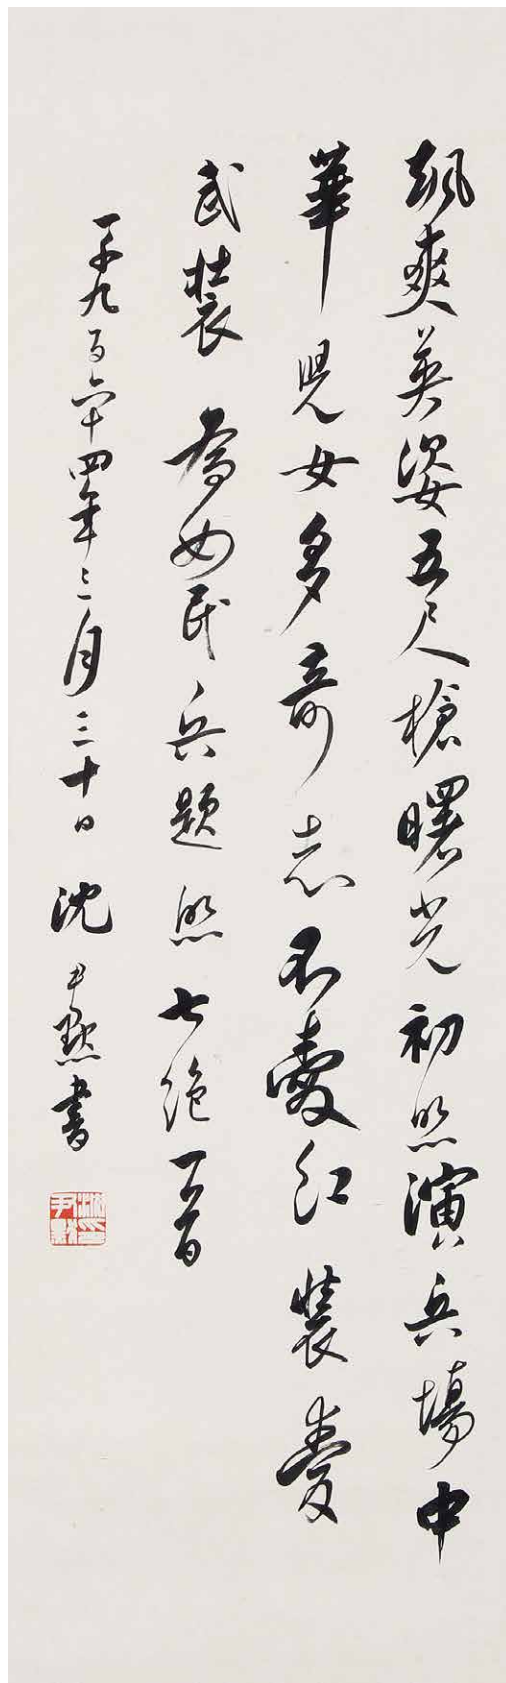 飒爽英姿五尺槍曙光初照演兵場中
華兒女多奇志不愛紅裝愛
武裝 為女民兵題照七絕一首
一千九百六十四年三月三十日 沈尹默書
沈尹默印